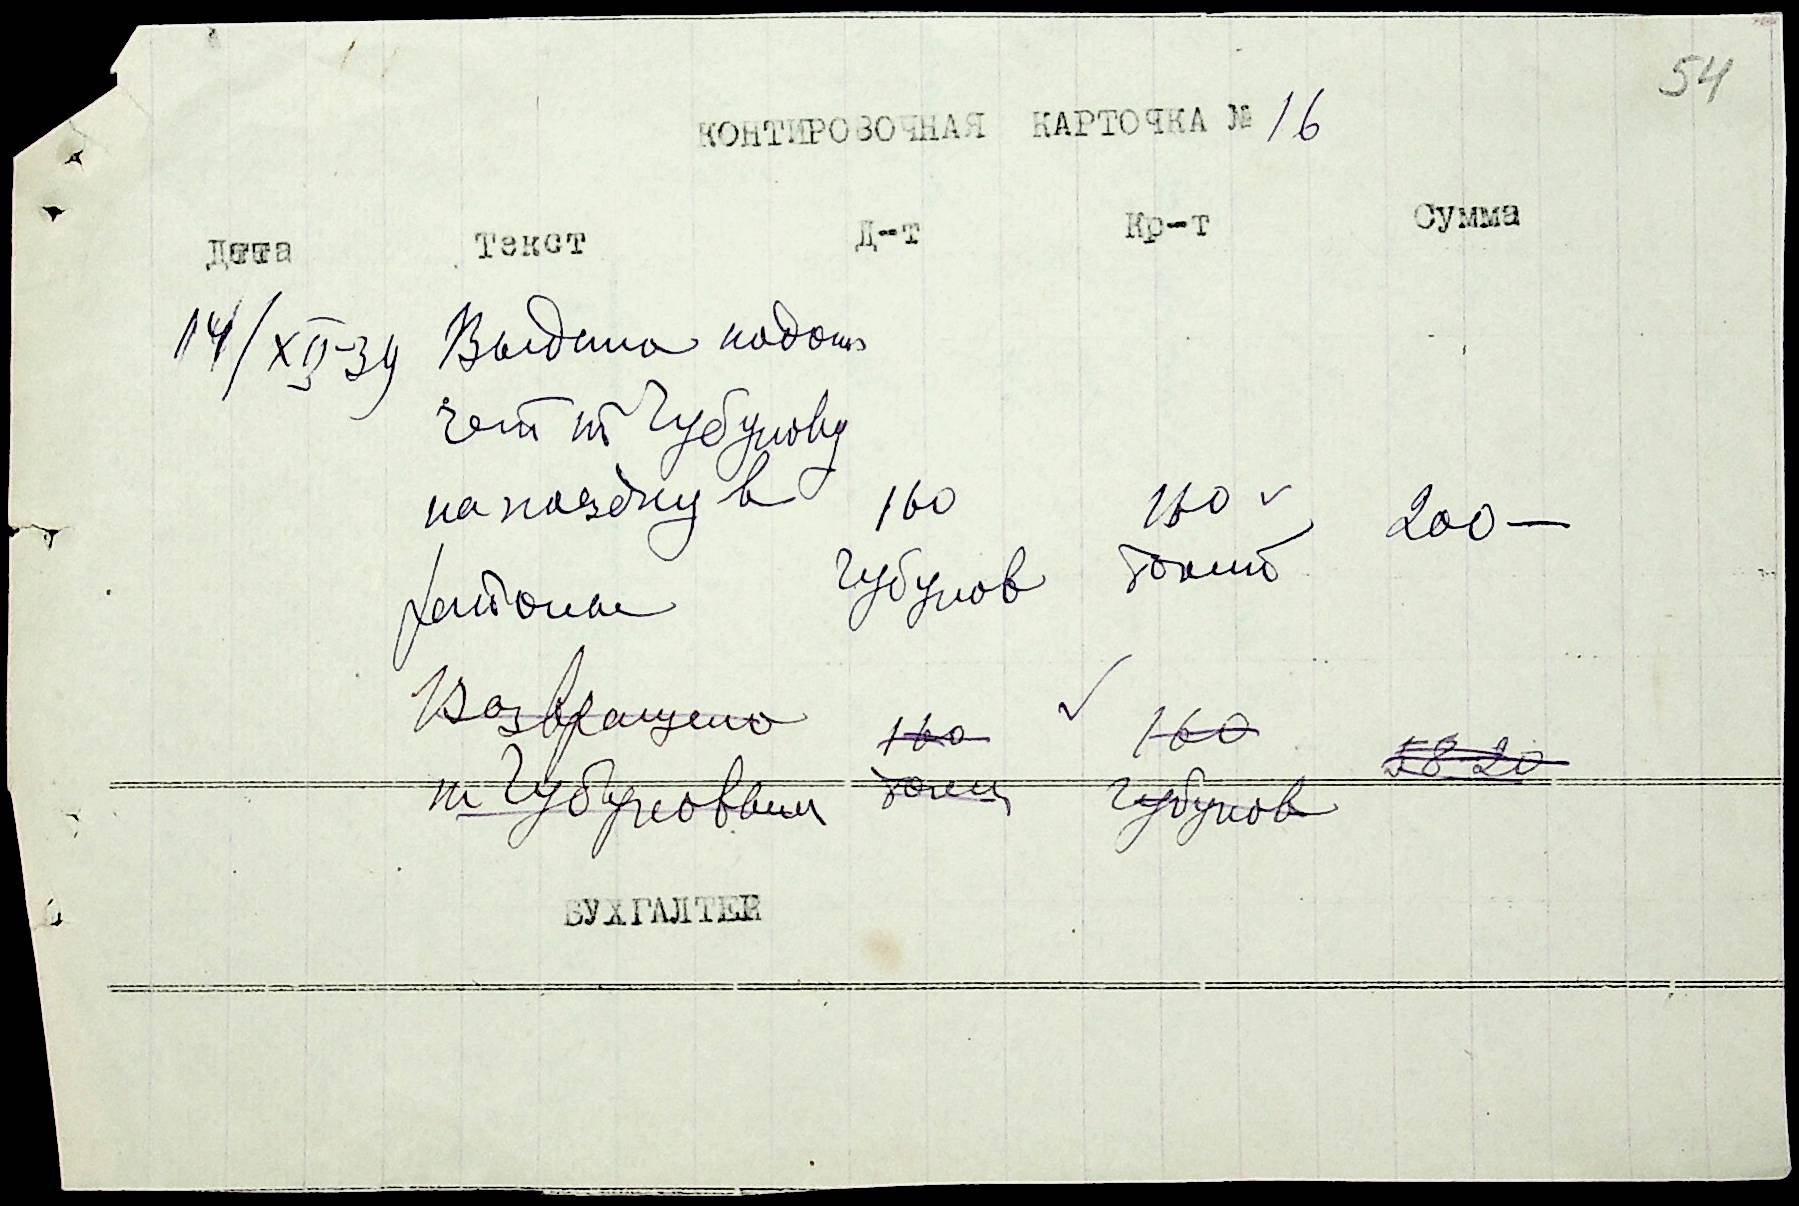 54
КОНТИРОВОЧНАЯ КАРТОЧКА № 16
Дата Текст Д-т Кр-т Сумма
14/XII-39 Выдано подот
чет т Чубукову
на поездку в 160 160 200—
районы Чубуков
Возвращено 160 160 58-20
т Чубуковым Чубуков
БУХГАЛТЕР